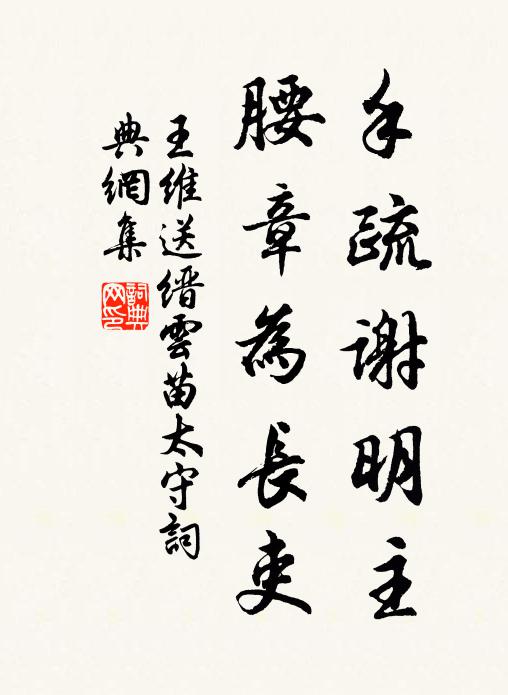 手疏謝明主
腰章為長吏
王維送縉雲苗太守詞
典網集
詞典
网印